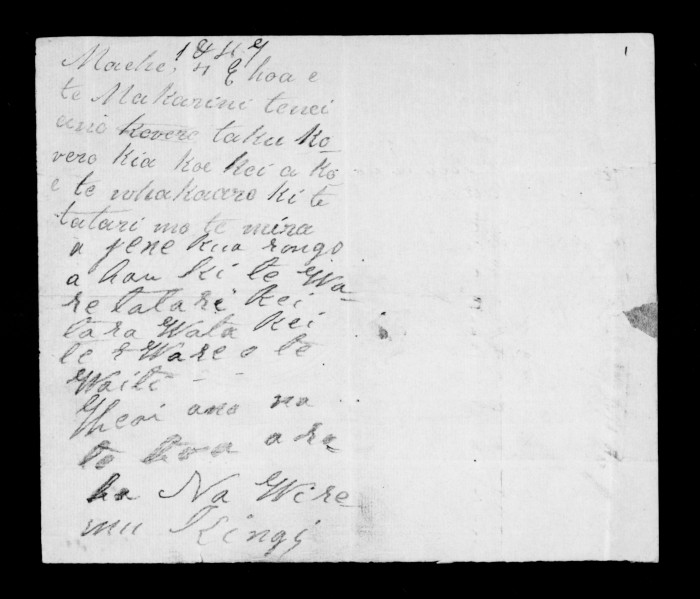 1847
1
Maehe. 4 E hoa e
te Makarini tenei
ano kovero taku ko-
vero kia koe kei a ko
e te whakaaro ki te
tatari mo te mira
a pene kua rongo
a hau ki te Wa-
re tatari kei
tara Wata kei
te Ware o te
Waiti - -
Heoi ano na
to hoa aro-
ha Na Wire-
mu Kingi